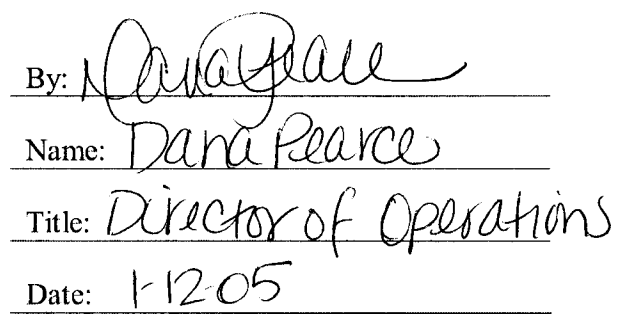 By: Dana Pearce
Name: Dana Pearce
Title: Director of Operations
Date: 1-12-05